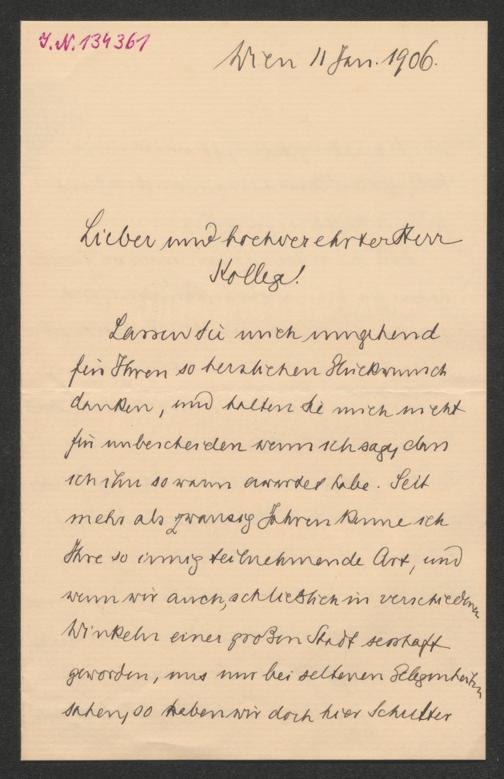 I.N. 134361
Wien 11 Jan. 1906.
Lieber und hochverehrter Herr
Kollege!
Lassen Sie mich umgehend
für Ihren so herzlichen Glückwunsch
danken, und halten Sie mich nicht
für unbescheiden wenn ich sage, dass
ich ihn so warm erwartet habe. Seit
mehr als zwanzig Jahren kenne ich
Ihre so innig teilnehmende Art, und
wenn wir auch, schließlich in verschiedenen
Winkeln einer großen Stadt sesshaft
geworden, uns nur bei seltenen Gelegenheiten
sahen, so haben wir doch hier Schulter